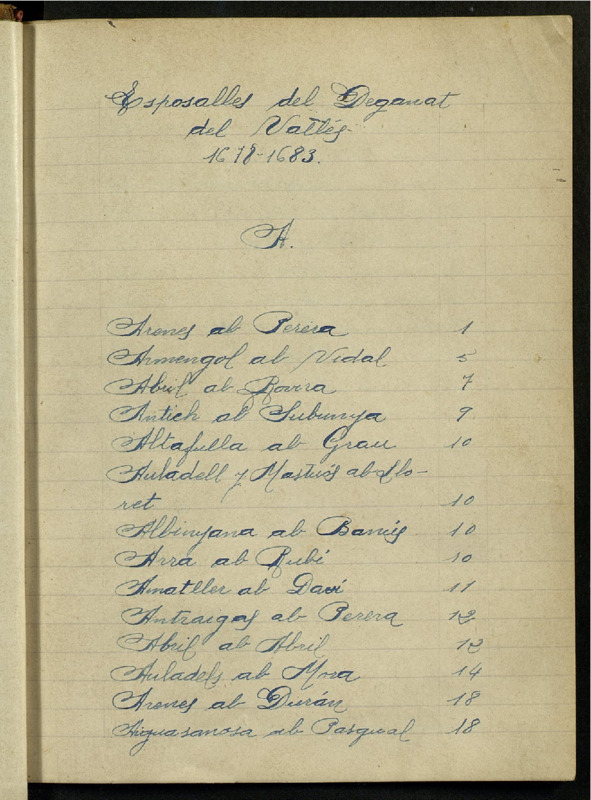 Esposalles del Deganat
del Vallés
1678-1683.
A.
Arenes ab Perera 1
Armengol ab Vidal 5
Abril ab Rovira 7
Antich ab Subunya 9
Altafulla ab Grau 10
Auladell y Mastus ab Llo-
ret 10
Albinyana ab Banús 10
Arra ab Rubí 10
Amatller ab Daví 11
Antraigas ab Perera 12
Abril ab Abril 12
Auladels ab Mora 14
Arenes ab Durán 18
Aiguasanosa ab Pasqual 18